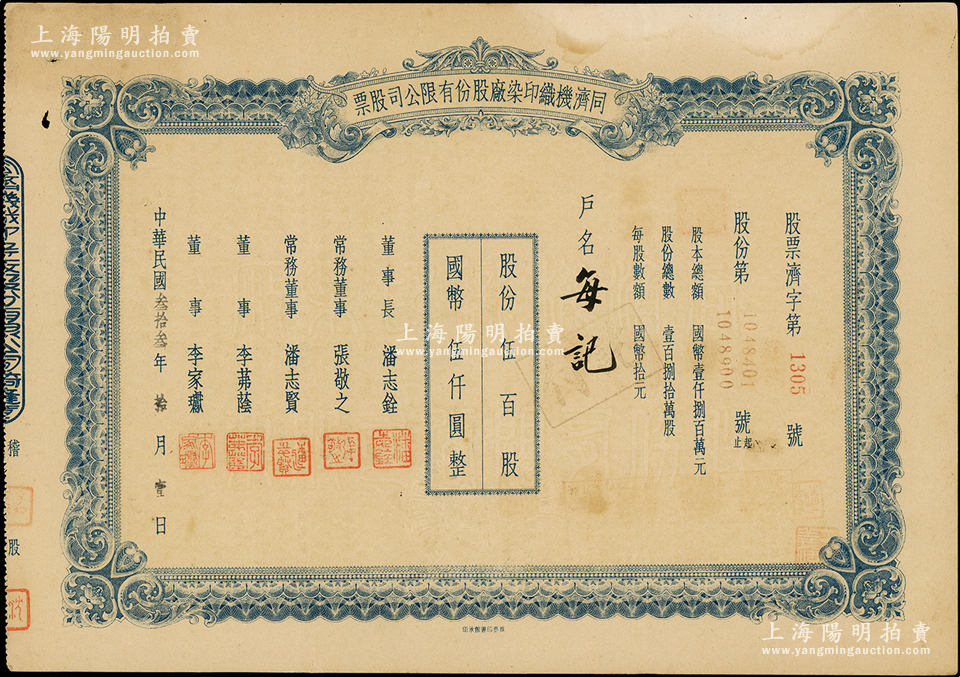 上海陽明拍賣
www.yangmingauction.com
同濟機織印染廠股份有限公司股票
股票濟字第 1305 號
股份第 1048401 1048900 號起止
股本總額 國幣壹仟捌百萬元
股份總數 壹百捌拾萬股
每股數額 國幣拾元
戶名 每記
股份伍百股
國幣伍仟圓整
董事長 潘志銓
常務董事 張敬之
常務董事 潘志賢
董事 李茀蔭
董事 李家瓛
中華民國叁拾叁年拾月壹日
稽
股
上海陽明拍賣
www.yangmingauction.com
上海陽明拍賣
www.yangmingauction.com